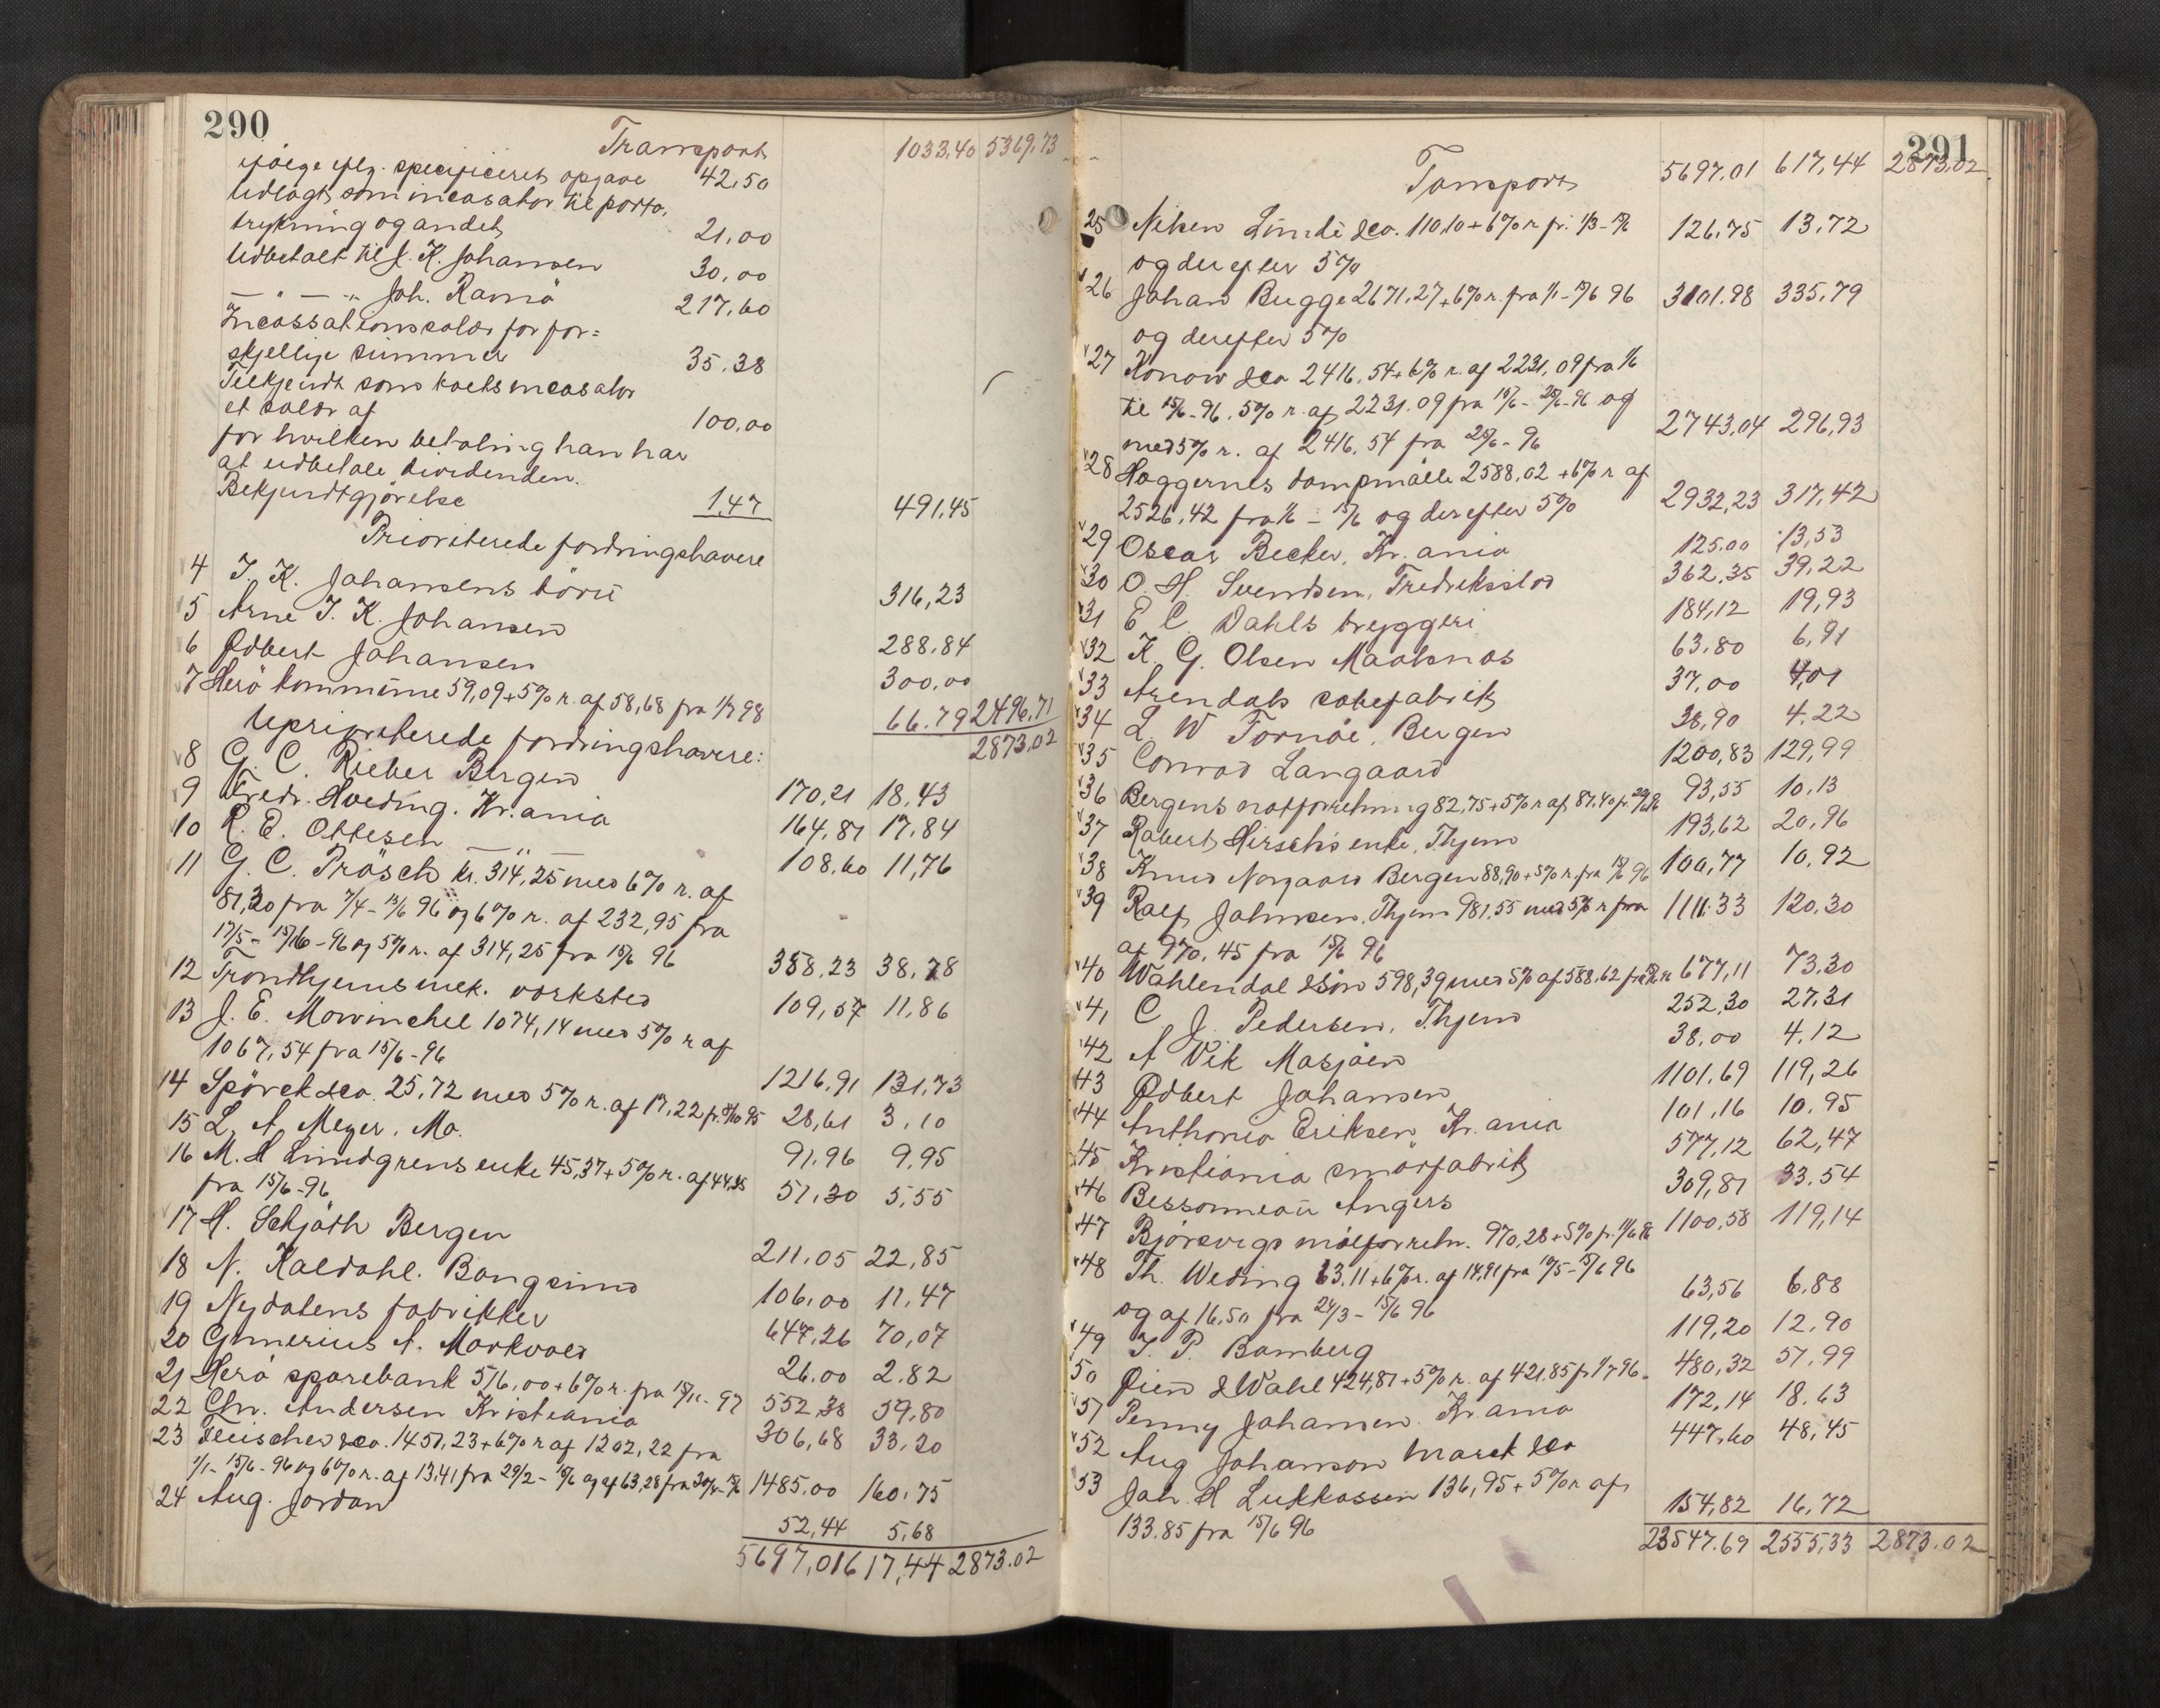 290
Transport 1033,40 5369,73
ifølge flg. specificeret opgave 42,50
Udlagt som incasator til porto,
trykning og andet 21,00
Udbetalt til J. K. Johansen 30,00
— " — " Joh. Ramö 217,60
Incassationssalær for for=
skjellige summer 35,38
Tilkjendt som boets incasator
et salær af 100,00
for hvilken betaling han har
at udbetale dividenden.
Bekjendtgjørelse 1,47 491,45
Prioriterede fordringshavere
4 J. K. Johansens börn 316,23
5 Arne J. K. Johansen 288,84
6 Odbert Johansen 300,00
7 Herö kommune 59,09 + 5% r. af 58,68 fra 1/7 98 66.79 2496,71
Uprioriterede fordringshavere: 2873,02
8 G. C. Rieber Bergen 170,21 18,43
9 Fredr. Hveding. Kr.ania 164,81 17,84
10 R. E. Ottesen — " — 108,60 11,76
11 G. C. Prösch kr. 314,25 med 6% r. af
81,30 fra 7/4 - 15/6 96 og 6% r. af 232,95 fra
17/5 - 15/6 - 96 og 5% r. af 314,25 fra 15/6 96 358,23 38,78
12 Trondhjems mek. værksted 109,57 11,86
13 J. E. Mowinckel 1074,14 med 5% r af
1067,54 fra 15/6 - 96 1216,91 131,73
14 Spörck & co. 25,72 med 5% r. af 17,22 fr. 95 28,61 3,10
15 L. A. Meyer, Mo. 91,96 9,95
16 M. H Lundgrens enke 45,37 + 5% r. af 44,35
fra 15/6 - 96 51,30 5,55
17 H. Schjöth Bergen 211,05 22,85
18 N. Kaldahl. Bangsund 106,00 11,47
19 Nydalens fabrikker 647,26 70,07
20 Gunerius A. Markvold 26,00 2,82
21 Herö sparebank 516,00 + 6% r. fra 15/11 - 97 552,38 59,80
22 Chr. Andersen Kristiania 306,68 33,20
23 Fleischer & co. 1451,23 + 6% r af 1202,22 fra
1/1 - 15/6 - 96 og 6% r. af 13,41 fra 29/2 - 15/6 og af 63,28 fra 1485,00 160,75
24 Aug. Jordan 52,44 5,68
5697,01 617,44 2873,02
291
Transport 5697,01 617,44 2873,02
25 Nilsen Lund & co. 110,10 + 6% r fr. 1/3 - 15/6 126,75 13,72
og derefter 5%
26 Johan Bugge 2671,27 + 6% r. fra 1/1 - 15/6 96 3101.98 335,79
og derefter 5%
27 Konow & co 2416,54 + 6% r. af 2231,09 fra 1/6
til 15/6 - 96. 5% r. af 2231.09 fra 15/6 - 25/6 - 96 og
med 5% r. af 2416,54 fra 25/6 - 96 2743,04 296,93
28 Vaggernes dampmölle 2588,02 + 6% r af
2526,42 fra 1/6 - 15/6 og derefter 5% 2932,23 317,42
29 Oscar Becker, Kr.ania 125.00 13,53
30 O. H. Svendsen, Fredriksstad 362,35 39,22
31 E. C. Dahls bryggeri 184,12 19,93
32 K. G. Olsen Maalsnæs 63,80 6,91
33 Arendals sæbefabrik 37,00 4,01
34 L. W Fornöe, Bergen 38,90 4,22
35 Conrad Langaard 1200,83 129,99
36 Bergens notforretning 82,75 + 5% r af 81,40 fr. 93,55 10,13
37 Robert Hirschs enke, Thjem 193,62 20,96
38 Knud Norgaard Bergen 88,90 + 5% r. fra 15/6 96 100,77 10,92
39 Ralf Johnsen, Thjem 981,55 med 5% r fra 1111,33 120,30
af 970,45 fra 15/6 96
40 Wahlendal & sön 598,39 med 5% af 588,62 677,11 73.30
41 C. J. Pedersen, Thjem 252,30 27,31
42 A Vik Mosjöen 38,00 4,12
43 Odbert Johansen 1101,69 119,26
44 Anthonio Eriksen, Kr.ania 101,16 10,95
45 Kristiania smörfabrik 577,12 62,47
46 Bessonneau Angers 309,81 33,54
47 Björsvigs mölleforretn. 970,28 + 5% fr. 1100,58 119,14
48 Th. Weding 63,11 + 6% r. af 14,91 fra 19/5 - 15/6 96
og af 16,50 fra 24/3 - 15/6 96 63,56 6,88
49 J. P. Bamberg 119,20 12,90
50 Øien & Wahl 424,81 + 5% r. af 421,85 fr 1/7 96. 480,32 51,99
51 Penny Johansen. Kr.ania 172,14 18,63
52 Aug Johanson Marck & co 447,60 48,45
53 Joh. H Lukkassen 136,95 + 5% r af
133.85 fra 15/6 96 154,82 16,72
23547.69 2555,33 2873.02